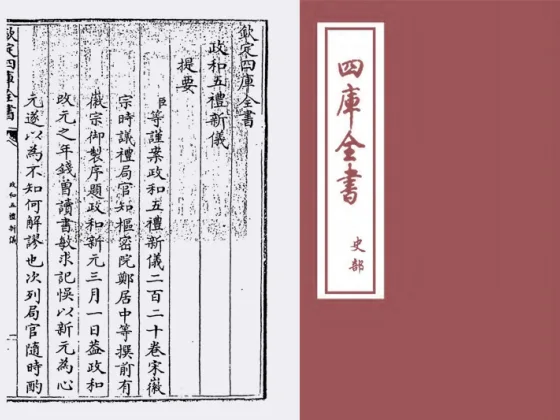 欽定四庫全書
政和五禮新儀
提要
臣等謹案政和五禮新儀二百二十卷宋徽
宗時議禮局官知樞密院鄭居中等撰前有
徽宗御製序題政和新元三月一日蓋政和
改元之年錢曾讀書敏求記悞以新元為心
元遂以為不知何解謬也次列局官隨時酌
欽定四庫全書
政和五禮新儀
四庫全書
史部